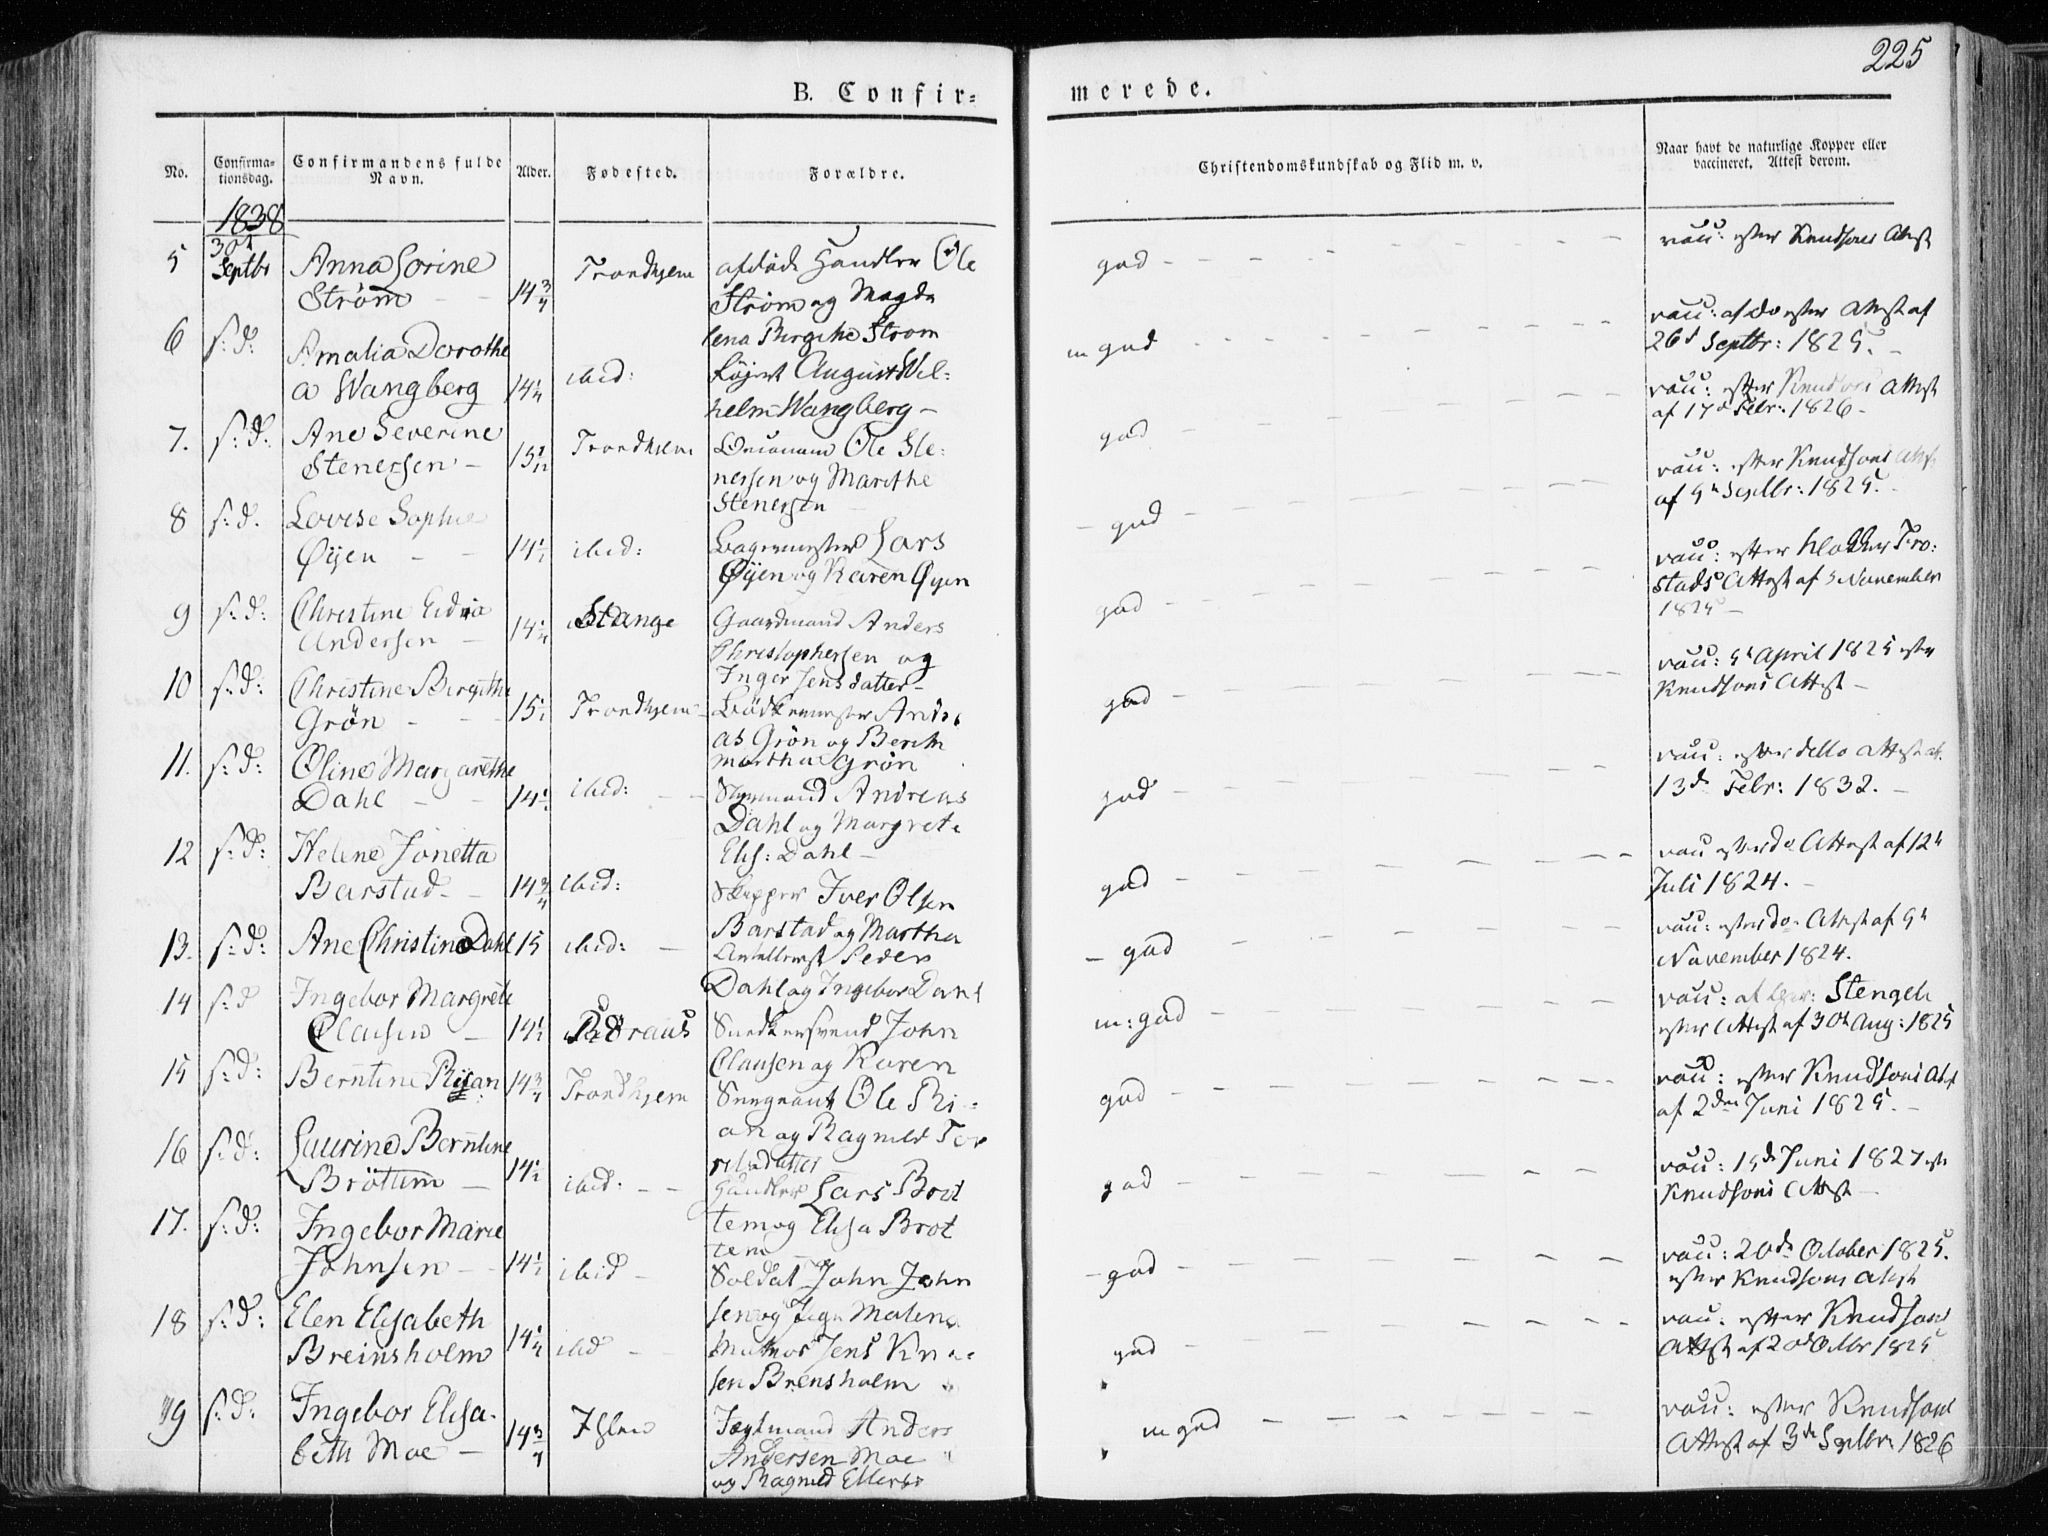 225
B. Confir-
merede.
No.
Confirma-
tionsdag.
Confirmandens fulde
Navn.
Alder.
Fødested.
Forældre.
Christendomskundskab og Flid m. v.
Naar havt de naturlige Kopper eller
vaccineret. Attest derom.
1838
5 30t Septbr Anna Sorine
Strøm 14 3/4 Trondhjem afdøde Handler Ole
Strøm og Magda
lena Birgithe Strøm
god
vacc: efter Knudsons Attest
6 s: d: Amalia Dorothe
a Wangberg 14 1/4 ibid: August Wil-
helm Wangberg
m god
vacc: af do efter Attest af
26d Septbr: 1825.
7. s: d: Ane Severine
Stenersen Trondhjem Ole Ste:
nersen og Marithe
Stenersen
god
vacc: efter Knudsons Attest
af 17d Febr: 1826
8 s: d. Lovise Sophie
Øyen ibid: Lars
Øyen og Karen Øyen
god
vacc: efter Knudsons Attest
af Septbr: 1825.
9 s: d: Christine
Andersen 14 1/4 Stange Gaardmand Anders
Christophersen og
Inger Jensdatter
god
vacc: efter Klokker Fro:
stads Attest af November
1825
10 s: d: Christine Birgithe
Grön Trondhjem Bødkermester Andre
as Grön og Berith
Martha Grön
god
vacc: April 1825 efter
Knudsons Attest
11. s: d: Oline Margarethe
Dahl ibid: Styrmand Andreas
Dahl og Margrete
Elis: Dahl
god
vacc: efter ditto Attest af
13de Febr: 1832.
12 s: d: Helene Jonetta
Barstad 14 3/4 ibid: Skipper Iver Olsen
Barstad og Martha
god
vacc efter do Attest af 12t
Juli 1824.
13. s: d: Ane Christine Dahl 15 ibid: Peder
Dahl og Ingebor Dahl
god
vacc: efter do Attest af 9t
November 1824.
14 s: d Ingebor Margrete
Clausen Snedkersvend John
Clausen og Karen
m: god
vacc: af Stengel
efter Attest af 30t Aug: 1825
15 s: d: Berntine Rian 14 3/4 Trondhjem Sergeant Ole Ri-
an og Ragnild
god
vacc: efter Knudsons Attest
af 2den Juni 1825.
16 s: d: Laurine Berntine
Bröttem ibid: Handler Lars Bröt
tem og Elisa Brot
tem
god
vacc: 15de Juni 1827 efter
Knudsons Attest
17. s: d: Ingebor Marie
Johnsen ibid Soldat John John
sen og Malena
god
vacc: 20de October 1825.
efter Knudsons Attest
18 s: d: Elen Elisabeth
Breinsholm 14 1/4 ibid Jens Knu
sen Brensholm
god
vacc: efter Knudsons
Attest af 20d Octbr 1825
19 s: d: Ingebor Elisa-
beth Moe 14 3/4 Ihlen Jægtmand Anders
Andersen Moe
og Ragnild
m god
vacc: efter Knudsons
Attest af 3de Septbr 1826